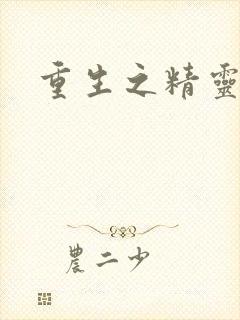 重生之精靈
農二少